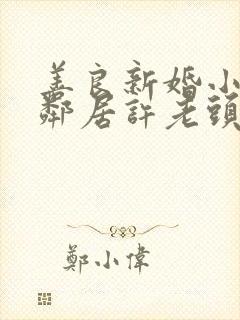 美良新婚小
鄰居許老頭
鄭小偉